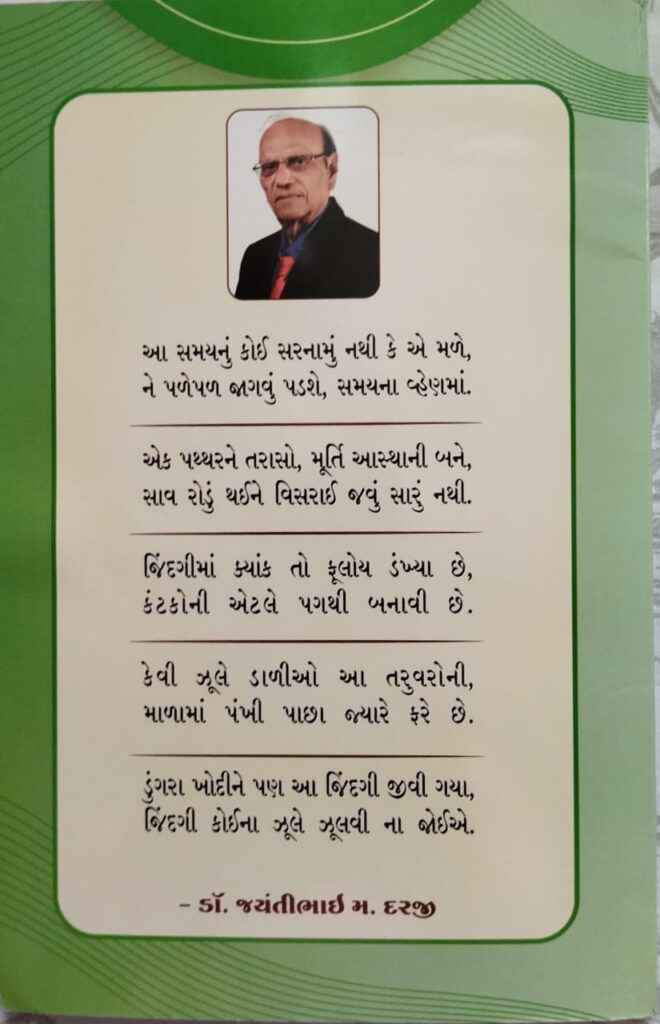 આ સમયનું કોઈ સરનામું નથી કે એ મળે,
ને પળેપળ જાગવું પડશે, સમયના વ્હેણમાં.
એક પથ્થરને તરાસો, મૂર્તિ આસ્થાની બને,
સાવ રોડું થઈને વિસરાઈ જવું સારું નથી.
જિંદગીમાં ક્યાંક તો ફૂલોય ડંખ્યા છે,
કંટકોની એટલે પગથી બનાવી છે.
કેવી ઝૂલે ડાળીઓ આ તરુવરોની,
માળામાં પંખી પાછા જ્યારે ફરે છે.
ડુંગરા ખોદીને પણ આ જિંદગી જીવી ગયા,
જિંદગી કોઈના ઝૂલે ઝૂલવી ના જોઈએ.
- ડૉ. જયંતીભાઈ મ. દરજી